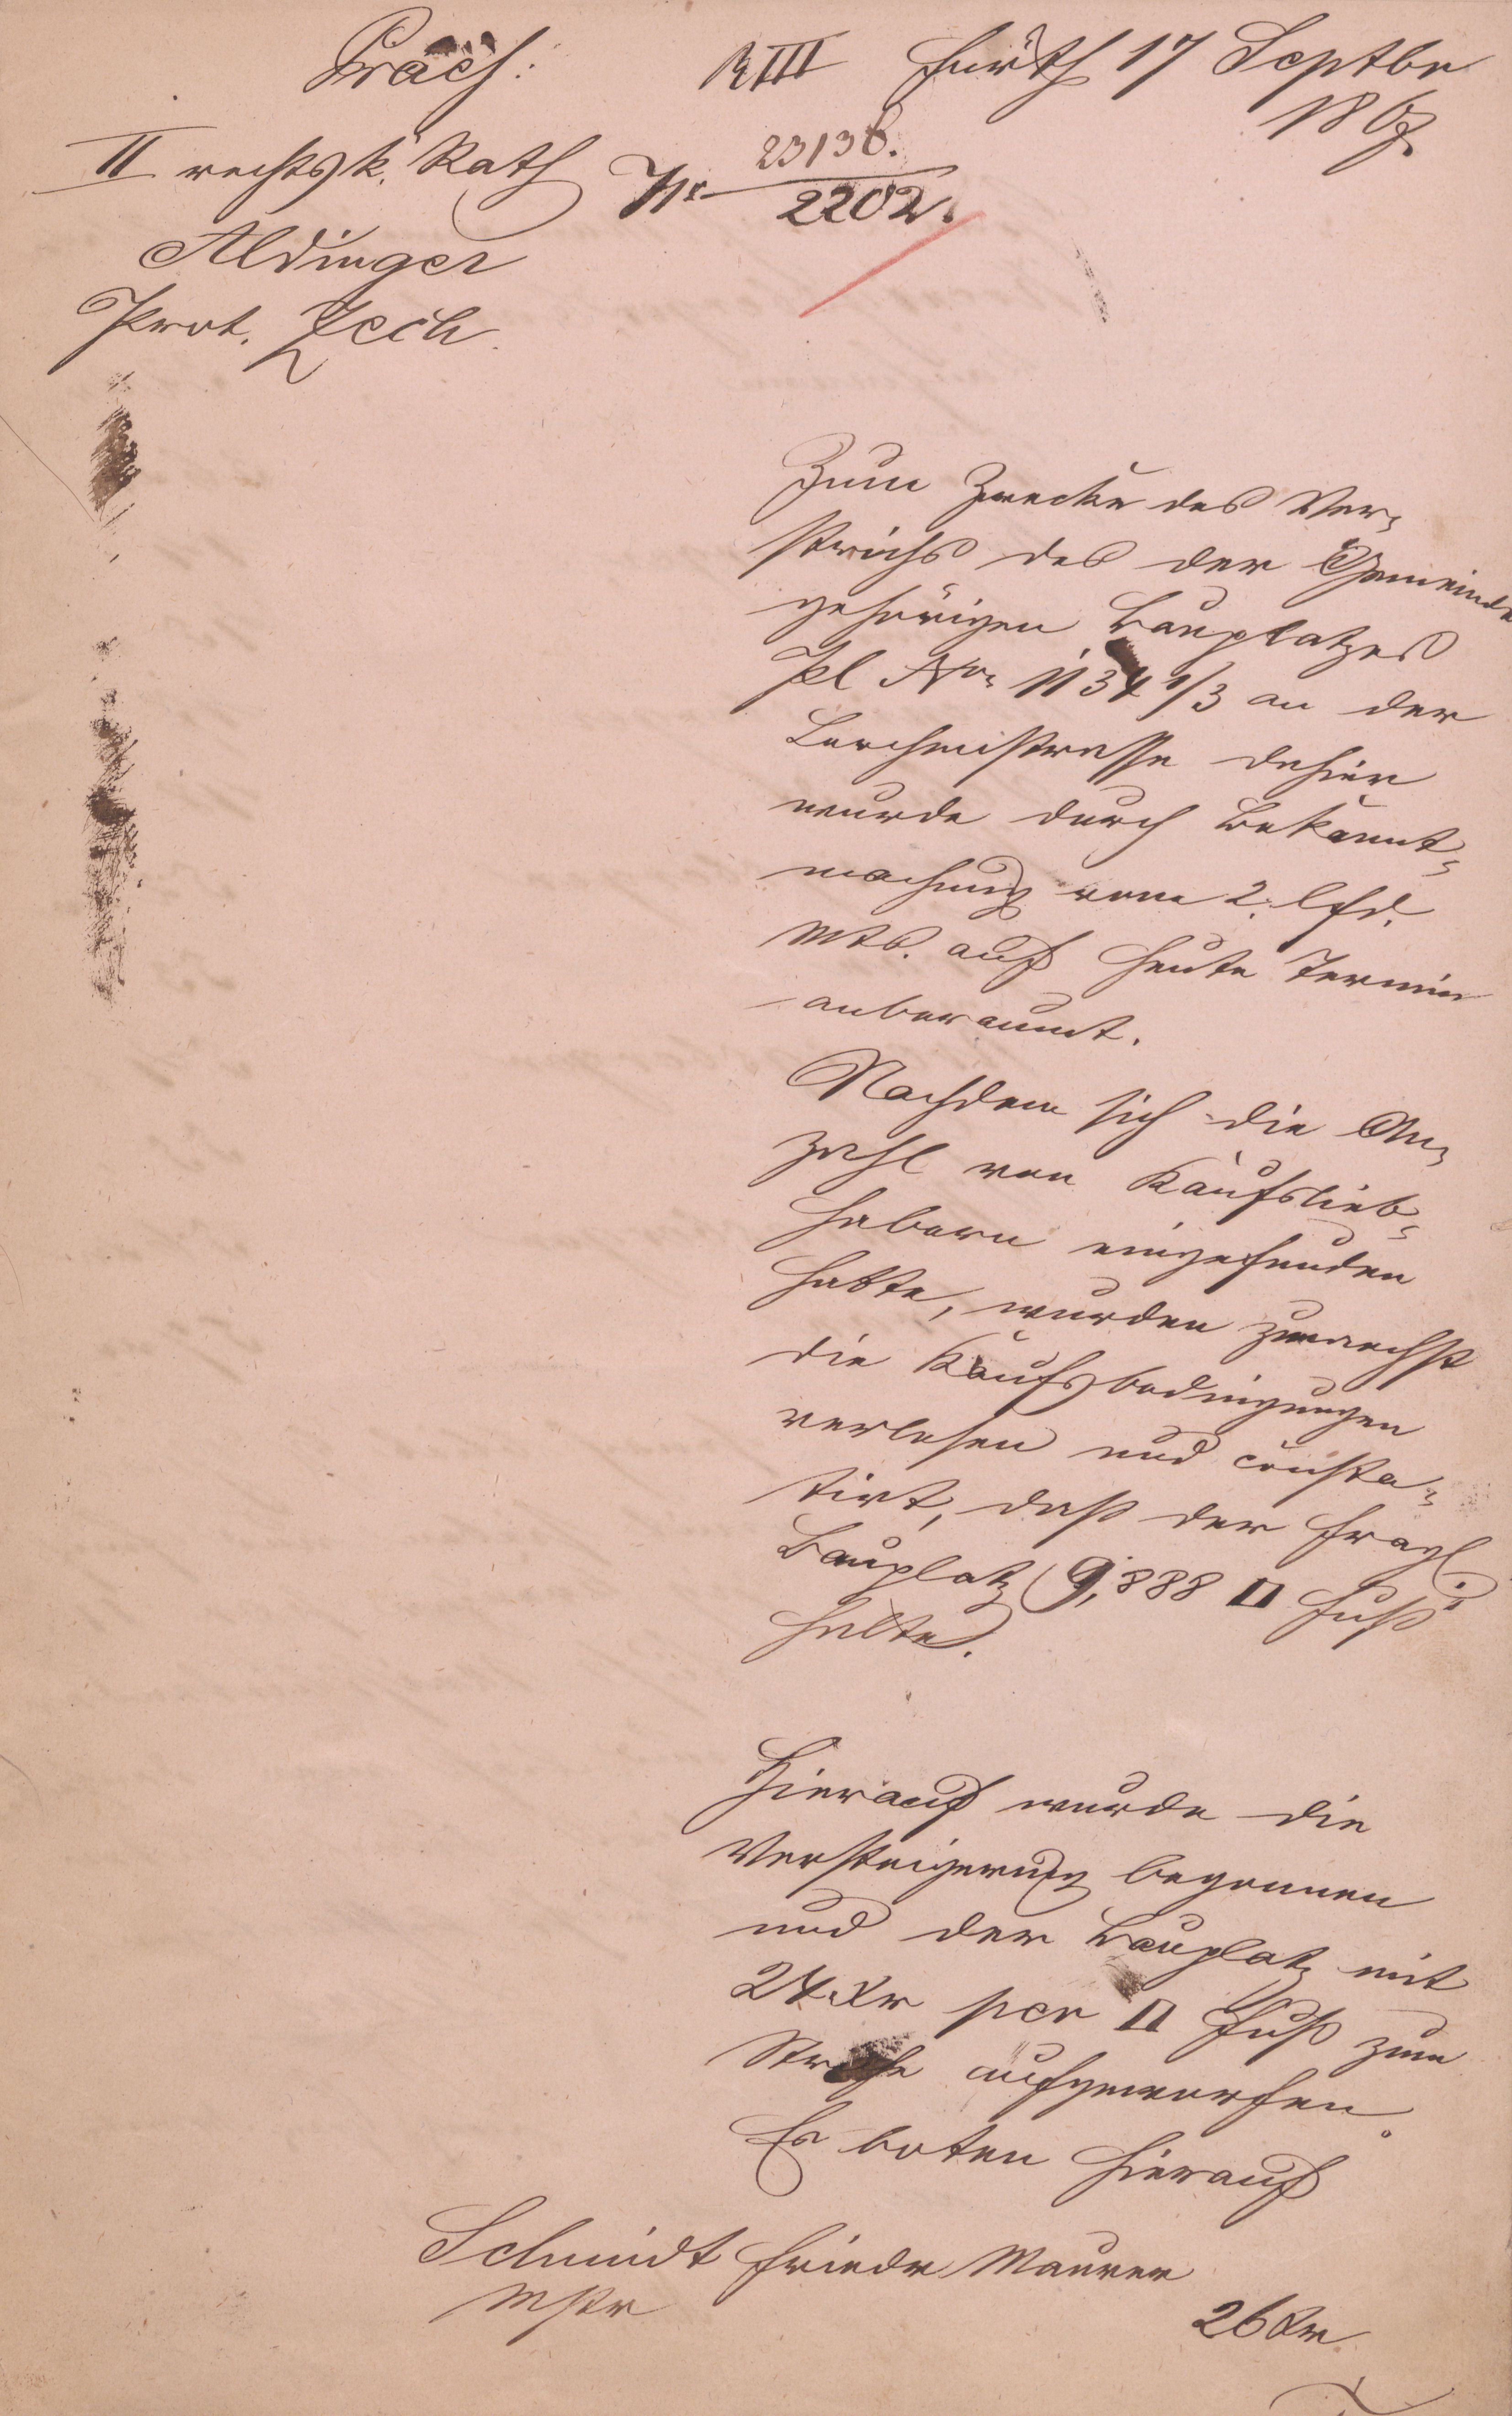 Präs:
II rechtsk. Rath
Aldinger
Prot. Zech.
R III Fürth 17 Septbr
1867.
Nr 23138.
2202.
Zum Zwecke des Ver-
strichs des der Gemeinde
gehörigen Bauplatzes
Pl Nro 1134 1/3 an der
Lerchenstrasse dahier
wurde durch Bekannt-
machung vom 2. lfd.
Mts. auf heute Termin
anberaumt.
Nachdem sich die An-
zahl von Kaufslieb-
habern eingefunden
hatte, wurden zunaechst
die Kaufsbedingungen
verlesen und consta-
tirt, daß der fragl.
Bauplatz 9,888 □ Fuß
halte.
Hierauf wurde die
Versteigerung begonnen
und der Bauplatz mit
24 Kr per □ Fuß zum
Striche aufgeworfen.
Es boten hierauf
Schmidt Friedr Maurer
Mstr
26 Kr.